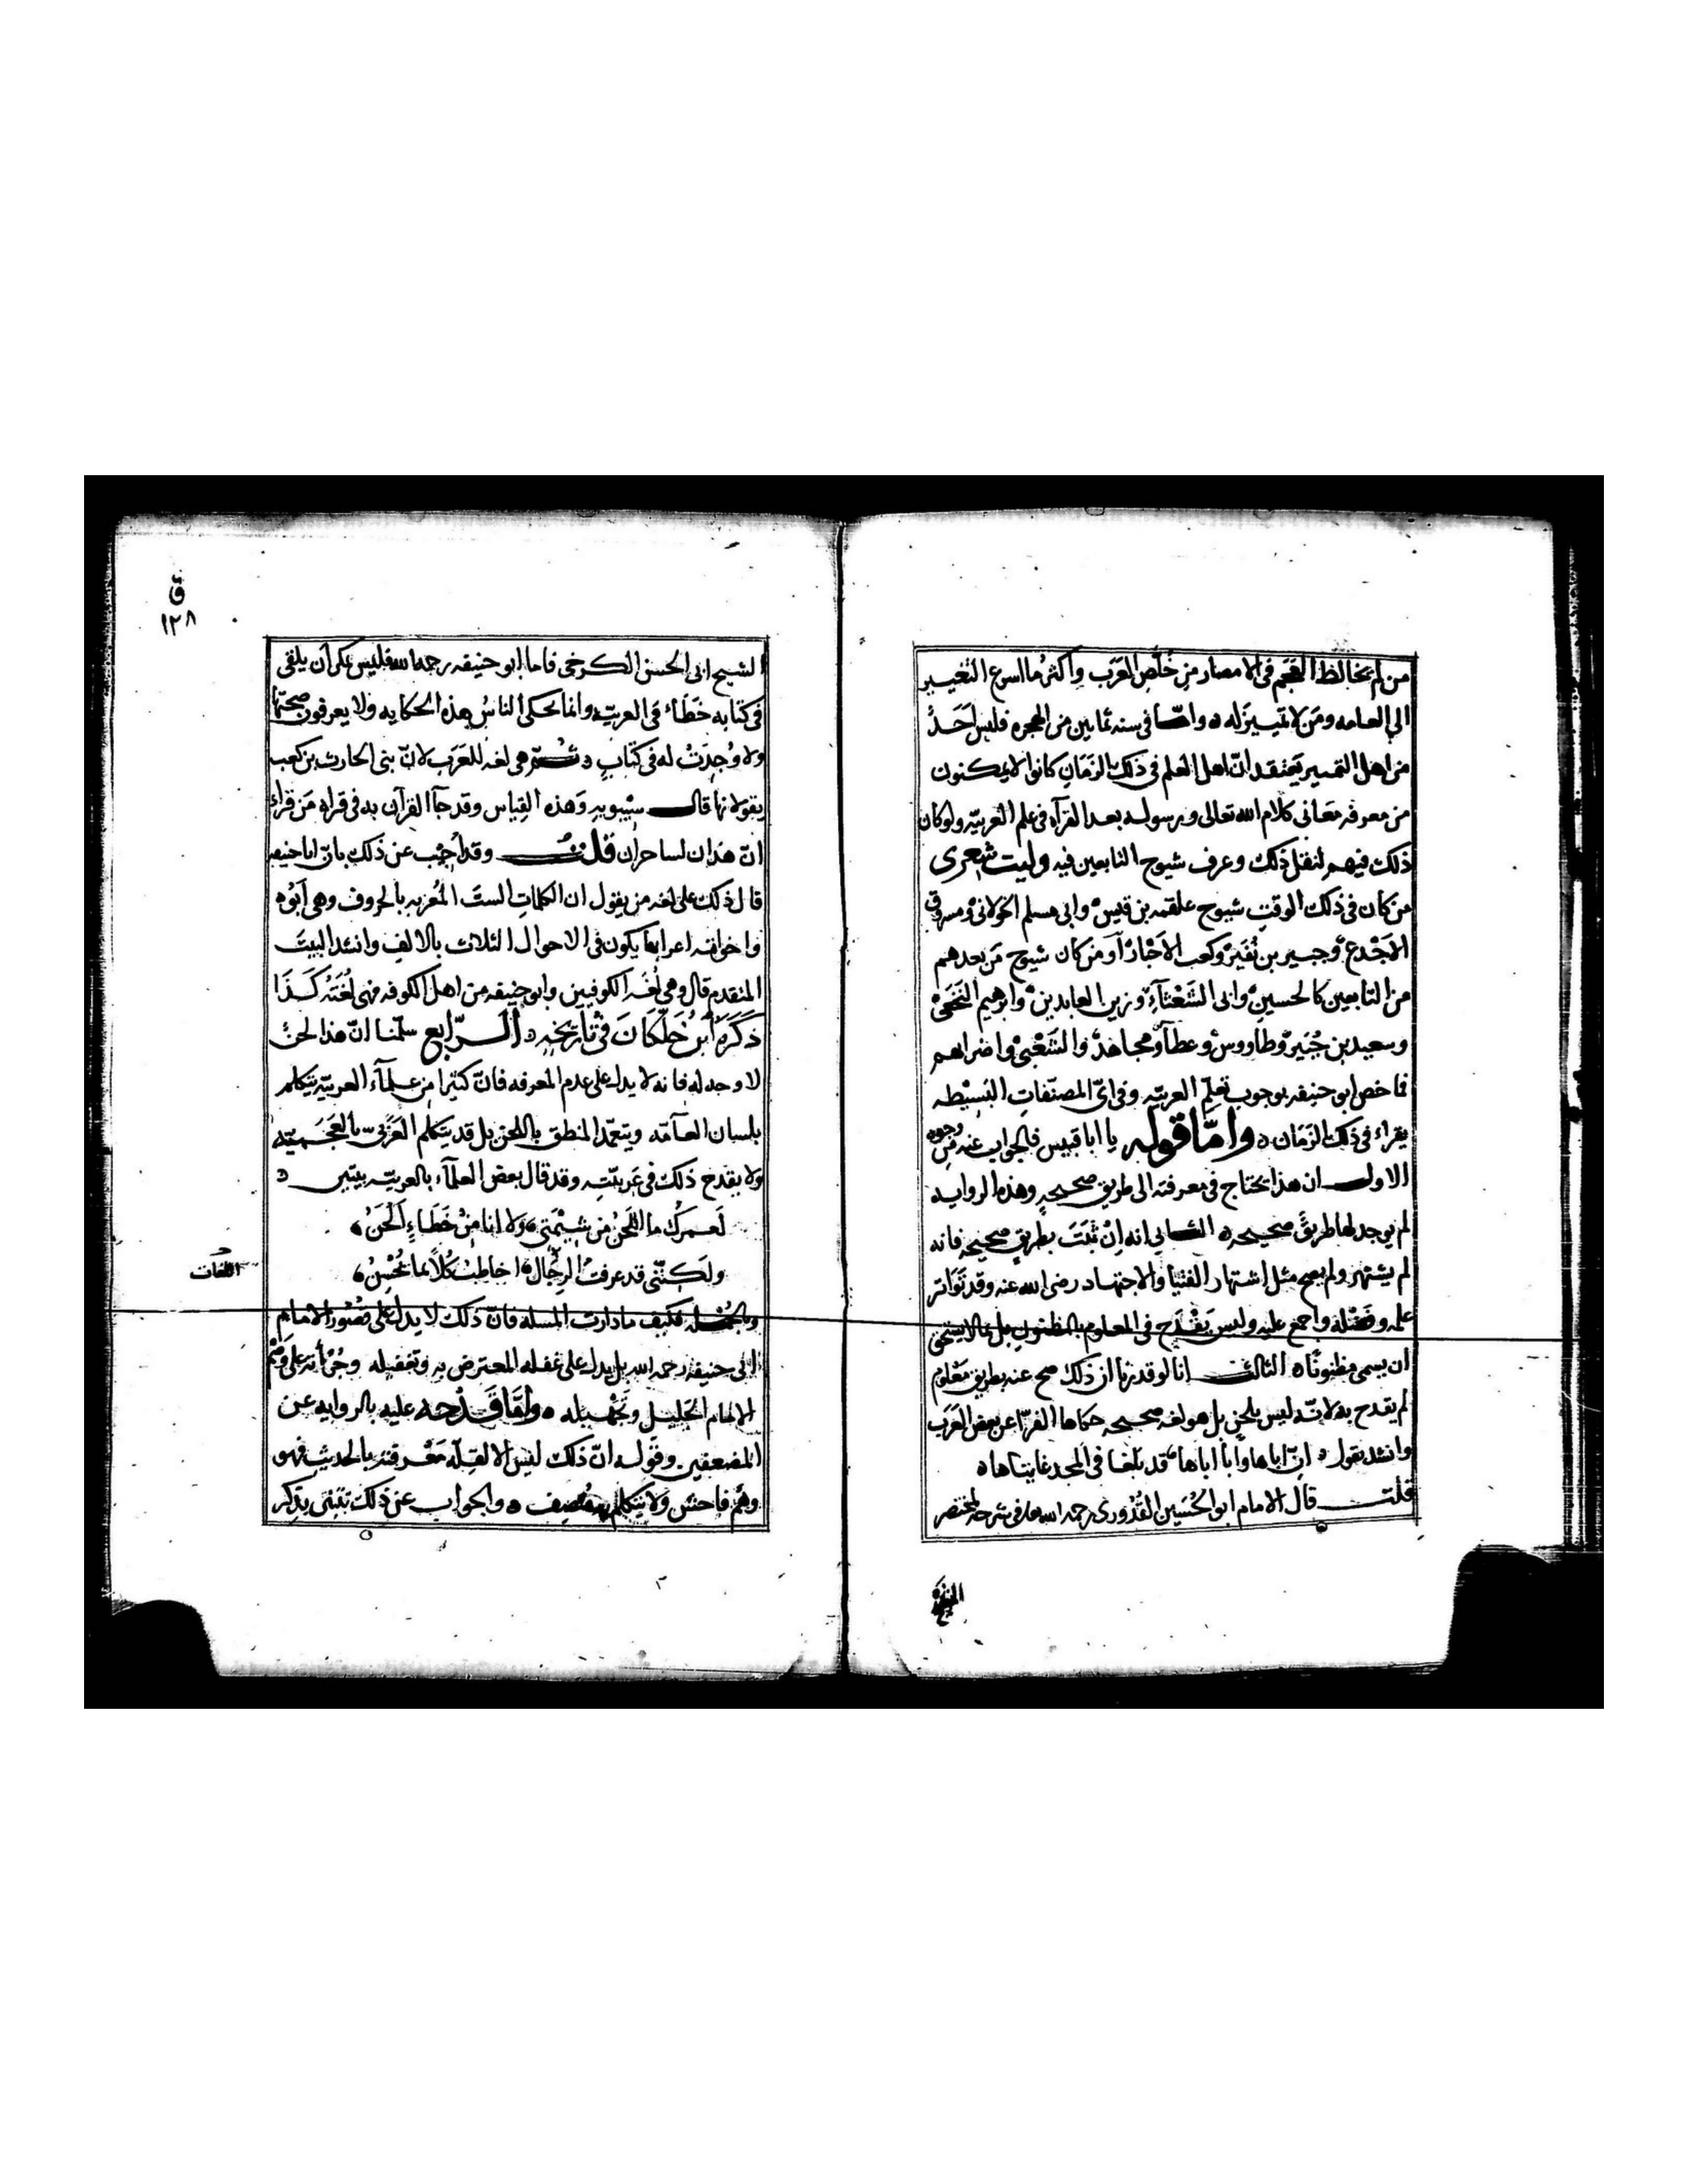 من لم يخالط العجم فى الامصار من خُلَّصِ العَرَب واكثرُ ما اسرع التغيير
الي العامه ومَن لا تمييز له ه وامّا فى سنه ثمانين من الهجره فليس اَحَدٌ
من اهل التمييز يَعتقد انّ اهل العلم فى ذلك الزمَانِ كانوا لا يتمكنون
من معرفه مَعَانى كلام الله تعالى ورسوله بعد القرآه فى علم العَربيّه ولو كان
ذلك فيهم لنقل ذلك وعرف شيوخ التابعين فيه وليت شِعرى
من كان فى ذلك الوقتِ شيوخ علقمه بن قيسٍ وابى مسلم الخولانى ومسروق
الاَجْدع وجبير بن نُفَيرٍ وكعب الاَحْبارْ اَو من كان شيوخ مَن بعدهم
من التابعين كالحسين وابى الشَعْثآءِ وزين العابدين وابرهيم النَخَعىّ
وسعيد بن جُبَيرٍ وطاووس وعطآ ومجاهدٌ والشَعْبىّ واضرابهم
فما خص ابو حنيفه بوجوب تعلّم العربيّه وفى اىّ المصنّفاتِ البَسيْطه
يقراء فى ذلك الزمَان ه وامَّا قوله يا ابا قبيس فالجواب عنه من وجوه
الاول ان هذا يحتاج فى معرفته الى طريق صحيحهٍ وهذه الروايه
لم يوجد لها طريقٌ صحيحه ه الثانى انه اِنْ ثَبَتَ بطريقٍ صحيحه فانه
لم يشتهر ولم يصح مثل اشتهار الفتيا والاجتهاد رضى الله عنه وقد تَوَاتر
علمه وفضْله واجمع عليه وليس يَقْدَح فى المعلوم بالمظنونِ بل بما لا يستحق
ان يسمى مظنونًا ه الثالث انا لو قدرنا ان ذلك صح عنه بطريق مَعْلومٍ
لم يقدح به لانّه ليس بلحنٍ بل هو لغه صحيحه حكاها الفرّا عن بعض العَرَب
وانشد يقول ه انّ اباها وابا اباها قد بلغا فى المجد غايتاها ه
قلت قال الامام ابو الحُسَين القُدُورى رحمه الله فى شرحه لمختصر
ق
١٢٨
الشيخ ابى الحسن الكرخى فاما ابو حنيفه رحمه الله فليس يمكن اَن يلقى
فى كتابه خَطَاء فى العربيّه وانما يحكى الناسُ هذه الحكايه ولا يعرفون صحتها
ولا وُجِدَتْ له فى كتابٍ ه ثم هى لغه للعَرَب لانّ بنى الحارث بن كعب
يقولونها قال سيْبويهِ وَهذه القِياس وقد جآ القرآن به فى قراه مَن قراء
انّ هذان لساحران قلتُ وقد اُجِيْب عن ذلك بانّ ابا حنيفه
قال ذلك على لغه من يقول ان الكلماتِ الستَ المُعْربه بالحروف وهى اَبُوه
واخواته اعرابها يكون فى الاحوال الثلاث بالالفِ وانشد البيتَ
المتقدم قال وهى لُغَه الكوفيين وابو حنيفه من اهل الكوفه فهى لُغَتُه كَذَا
ذَكَرَه اُبن خَلّكَانَ فى تاَريخِه ه الرّابع سلّمنا انّ هذا لحنٌ
لا وجه له فانه لا يدل على عدم المعرفه فانّ كثيرا من علمآء العربيّه يتكلم
بلسان العآمّه ويتعمّد المنطق باللحن بل قد يتكلم العَرَبىّ بالعَجَميّه
ولا يقدح ذلك فى عَربيّتِه وقد قال بعض العلمآء بالعربيّه بيتين ه
لَعمركَ ما اللَحنُ من شيْمَتى ولا انا مِنْ خَطَاءٍ اَلْحَنُ
ولَكِنّنى قد عرفتُ الرِجَال اخاطبُ كُلّاً بما يُحْسِنُ
اللغات
وبالجُمْله فكيف ما دارت المسله فانّ ذلك لا يدل على قُصُور الامام
ابى حنيفه رحمه الله بل يدل على غفله المعترض به وتغفيله وجُرأته على وَصْمِ
الامام الجليل وتَجْهيله ه وامّا قَدْحه عليه بالروايه عن
المضعفين وقَوله انّ ذلك ليس الا لقِلّه مَعْرفته بالحديثِ فهو
وهَم فاحش ولا يتكلم به مُنصِف ه والجواب عن ذلك يتبيّن بذِكر